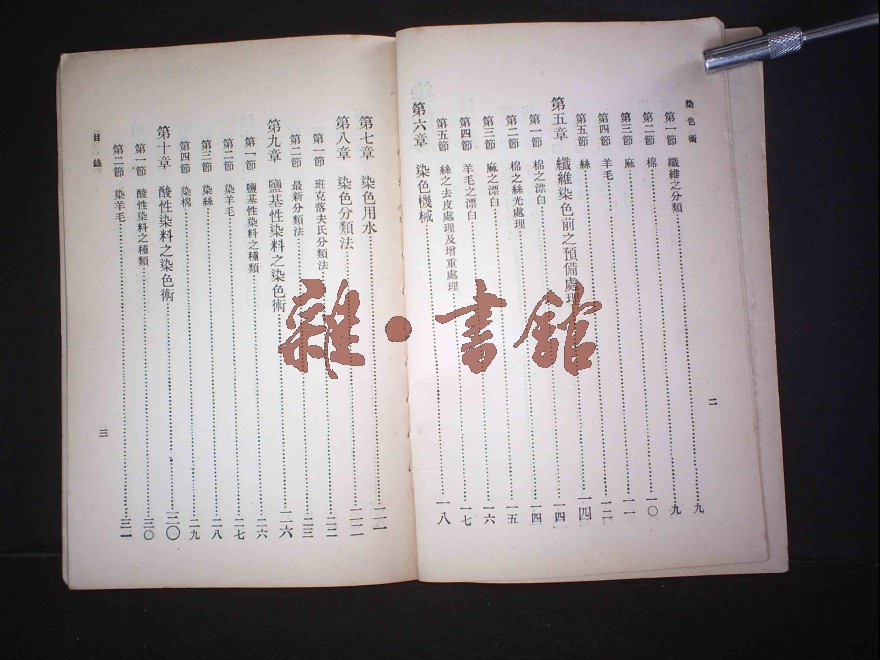 染色術
第一節 纖維之分類……九
第二節 棉……九
第三節 麻……一〇
第四節 羊毛……一一
第五節 絲……一二
第五章 纖維染色前之預備處理……一四
第一節 棉之漂白……一四
第二節 棉之絲光處理……一四
第三節 麻之漂白……一五
第四節 羊毛之漂白……一六
第五節 絲之去皮處理及增重處理……一七
第六章 染色機械……一八
二
第七章 染色用水……二一
第八章 染色分類法……二二
第一節 班克落夫氏分類法……二二
第二節 最新分類法……二三
第九章 鹽基性染料之染色術……二六
第一節 鹽基性染料之種類……二六
第二節 染羊毛……二七
第三節 染絲……二八
第四節 染棉……二九
第十章 酸性染料之染色術……三〇
第一節 酸性染料之種類……三〇
第二節 染羊毛……三一
目錄
三
雜·書館